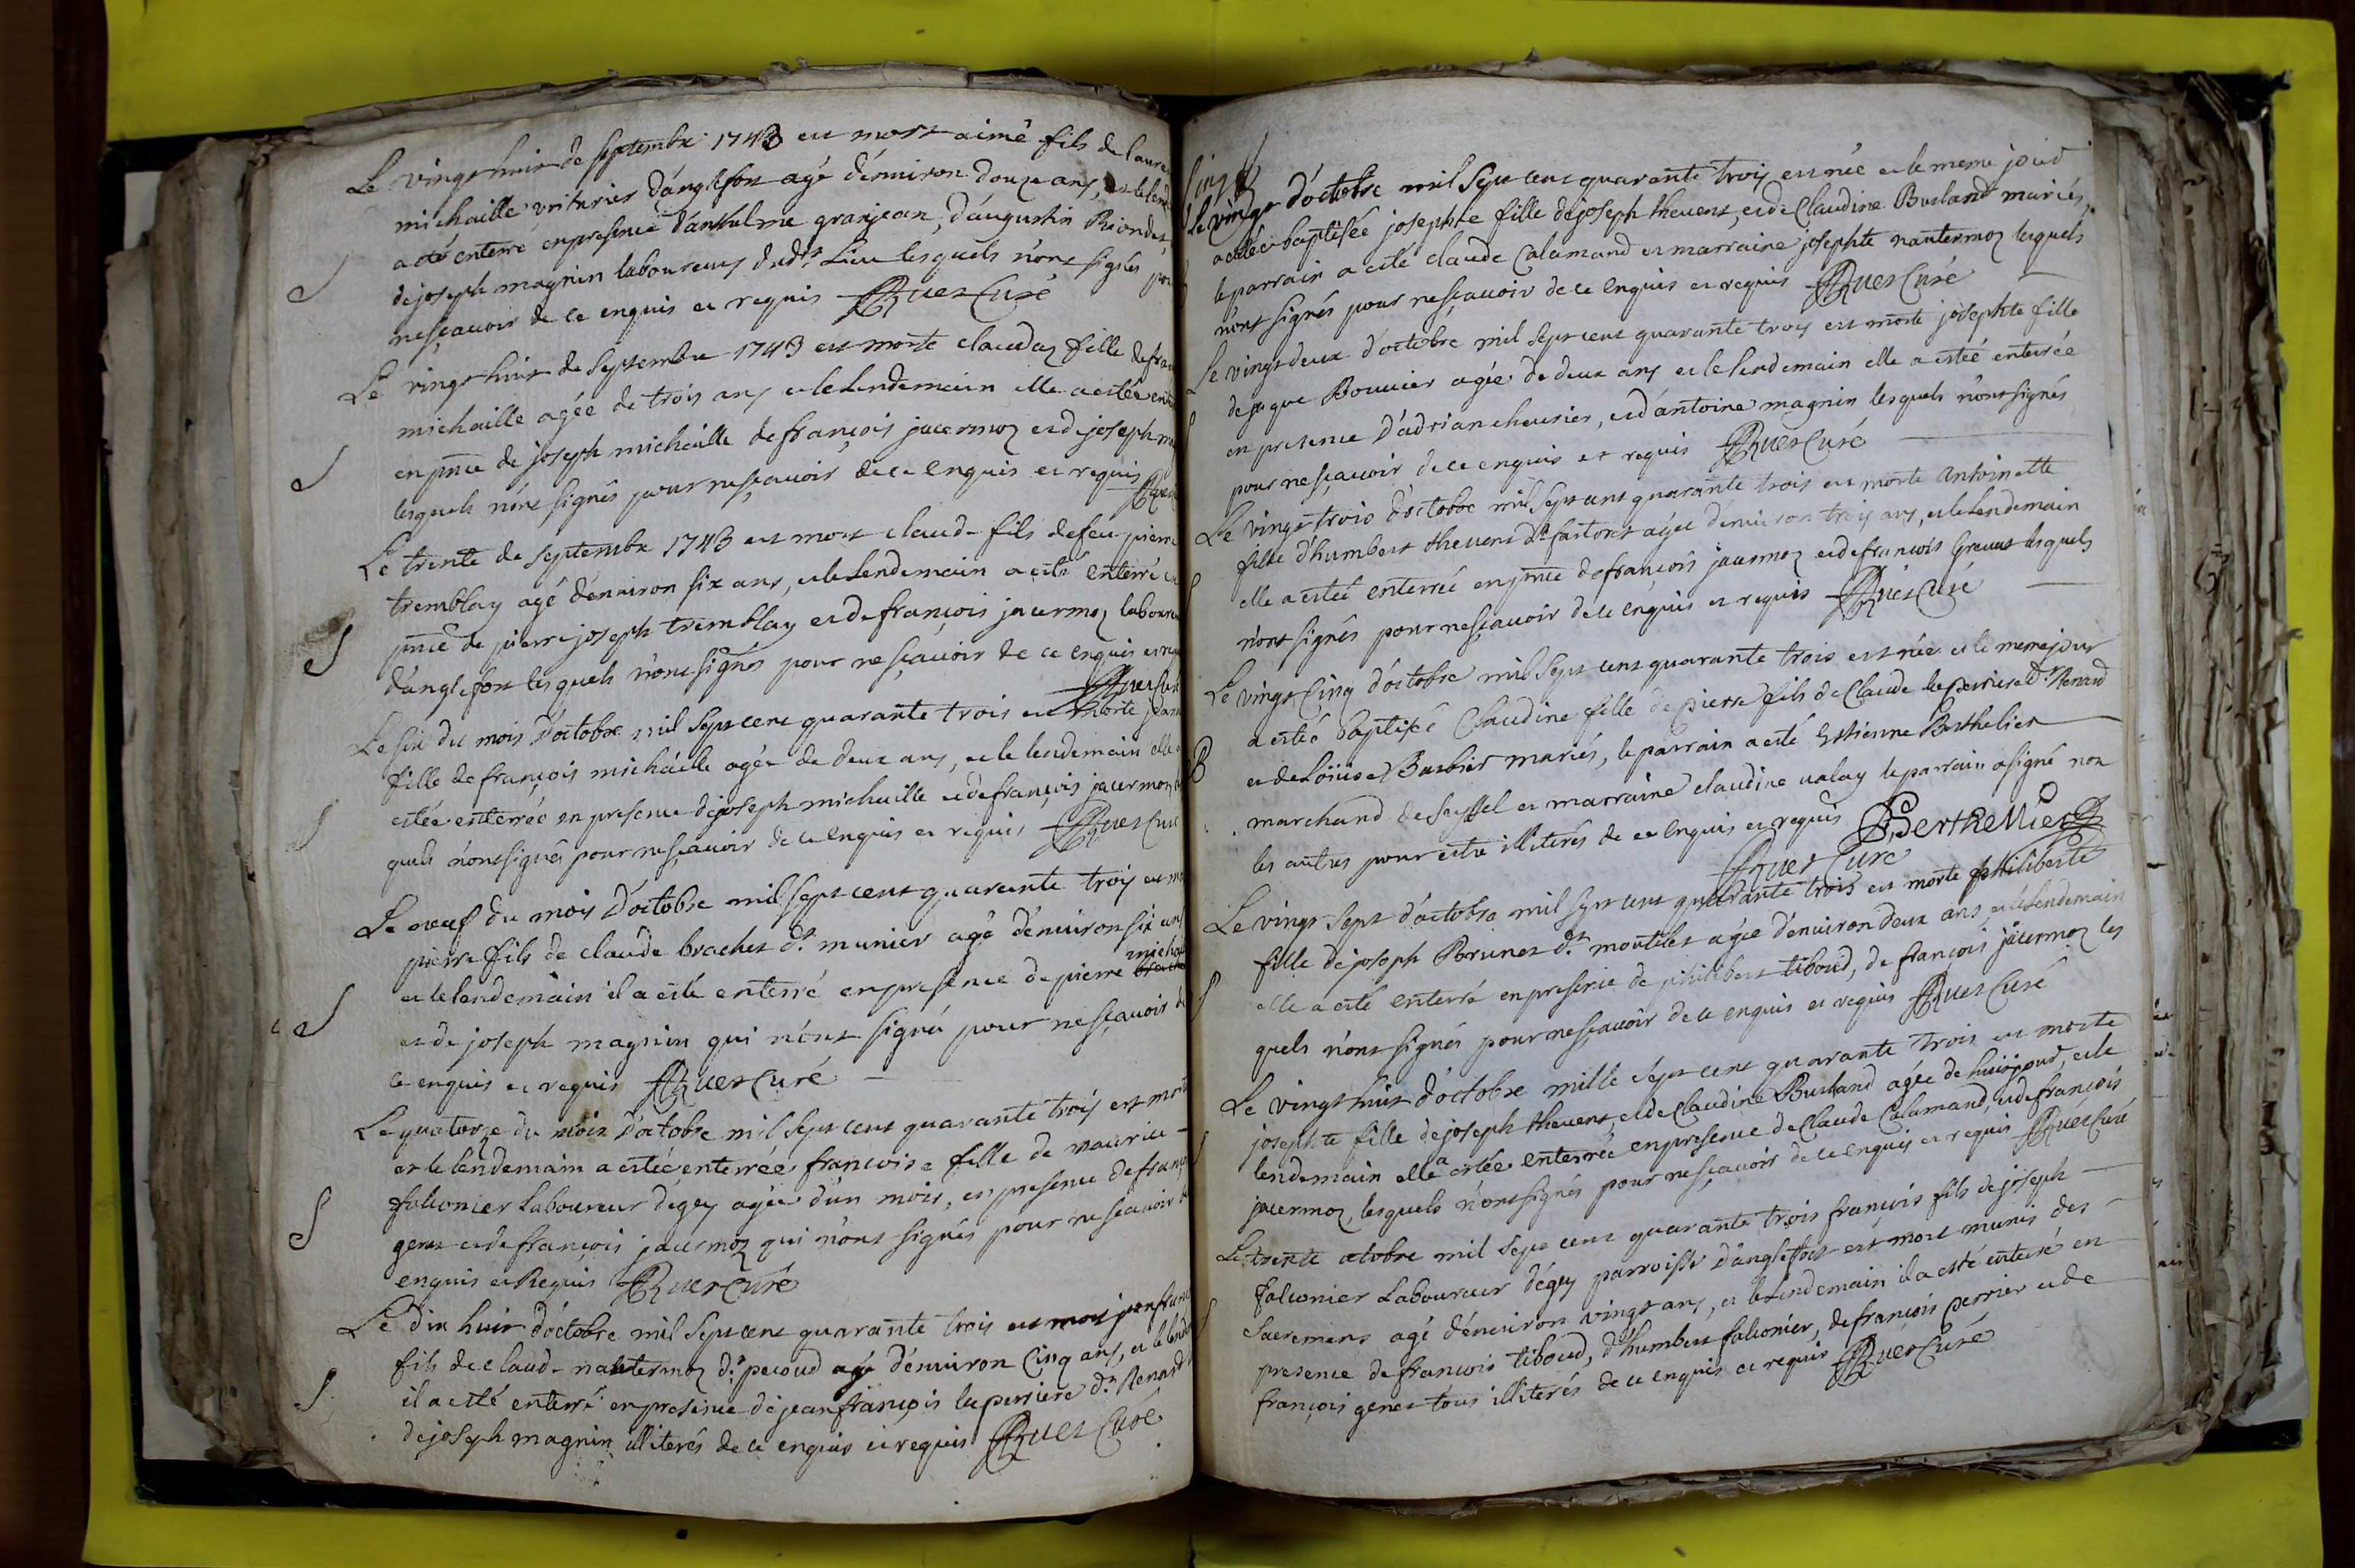 Le vingt huit de septembre 1743 est mort aimé fils de laure
michaille voiturier d'anglefort agé d'environ douze ans, et le lend
a esté enterré en presence d'anthelme granjean, d'augustin Riondet,
de joseph magnin laboureurs dudt. Lieu lesquels n'ont signés pour
nesçavoir de ce enquis et requis Ruet Curé
Le vingt huit de Septembre 1743 est morte clauda fille de fran
michaille agée de trois ans et le Lendemain elle a estée ent
en pnce de joseph michaille de françois jacermoz et de joseph m
lesquels n'ont signés pour nesçavoir de ce Enquis et requis Ruet
Le trente de Septembre 1743 est mort claude fils de feu pierre
tremblay agé d'environ six ans, et le Lendemain a esté enterré en
pnce de pierre joseph tremblay et de françois jacermoz laboure
d'anglefort lesquels n'ont signés pour nesçavoir de ce enquis et req
Ruet Curé
Le six du mois d'octobre mil Sept cent quarante trois est morte
fille de françois michaille agée de deux ans, et le lendemain elle a
estée enterrée en presence de joseph michaille et de françois jacermoz
quels n'ont signés pour nesçavoir de ce Enquis et requis Ruet Curé
Le neuf du mois d'octobre mil Sept cent quarante trois est m
pierre fils de claude brachet dt. munier agé d'environ six ans
micha
et le lendemain il a esté enterré en presence de pierre
et de joseph magnin qui n'ont signés pour nesçavoir de
ce enquis et requis Ruet Curé
Le quatorze du mois d'octobre mil Sept cent quarante trois est mort
et le lendemain a estée enterrée françoise fille de maurice
falconier Laboureur d'egey agée d'un mois, en presence de franç
genet et de françois jacermoz qui n'ont signés pour nesçavoir de
enquis et Requis Ruet Curé
Le dix huit d'octobre mil Sept cent quarante trois est mort jean franc
fils de claude nantermoz dt. pecoud agé d'environ Cinq ans, et le lende
il a esté enterré en presence de jean françois la perriere dt. Renard
de joseph magnin illiterés de ce enquis et requis Ruet Curé
Le vingt d'octobre mil Sept cent quarante trois est née et le meme jour
a estée baptisée josephte fille de joseph thevent, et de Claudine Burland mariés,
le parrain a esté claude Calamand et marraine josephte nantermoz lesquels
n'ont signés pour nesçavoir de ce Enquis et requis Ruet Curé
Le vingt deux d'octobre mil Sept cent quarante trois est morte josephte fille
de jaque Bouvier agée de deux ans et le lendemain elle a esteé enterrée
en presence d'adrian chevrier, et d'antoine magnin lesquels n'ont signés
pour nesçavoir de ce enquis et requis Ruet Curé
Le vingt trois d'octobre mil Sept cent quarante trois est morte antoinette
fille d'humbert thevent dt. fastoret agée d'environ trois ans, et le Lendemain
elle a esteé enterreé en pnce de françois jacermoz et de françois Gravat lesquels
n'ont signés pour nesçavoir de ce enquis et requis Ruet Curé
Le vingt Cinq d'octobre mil Sept cent quarante trois est née et le meme jour
a esteé baptiseé Claudine fille de pierre fils de Claude la perriere dt. Renard
B
et de Löuise Barbier mariés, le parrain a esté Estienne Berthelier
marchand de Seyssel et marraine claudine valay le parrain a signé non
les autres pour estre illiterés de ce Enquis et requis Berthellier
Ruet Curé
Le vingt Sept d'octobre mil Sept cent quarante trois est morte philiberte
fille de joseph Brunet dt. montelet agée d'environ deux ans et le Lendemain
elle a esté enterré en presence de philibert tiboud, de françois jacermoz les
quels n'ont signés pour nesçavoir de ce enquis et requis Ruet Curé
Le vingt huit d'octobre mille Sept cent quarante trois est morte
josephte fille de joseph thevent, et de Claudine Burland agée de huit jour, et le
lendemain elle a estée enterrée en presence de Claude Calamand, et de françois
jacermoz, lesquels n'ont signés pour nesçavoir de ce enquis et requis Ruet Curé
Le trente octobre mil Sept cent quarante trois françois fils de joseph
falconier Laboureur d'egey parroisse d'anglefort est mort munis des
Sacremens agé d'environ vingt ans, et le Lendemain il a esté enterré en
presence de françois tiboud, d'humbert falconier, de françois perrier et de
françois genet tous illiterés de ce enquis et requis Ruet Curé